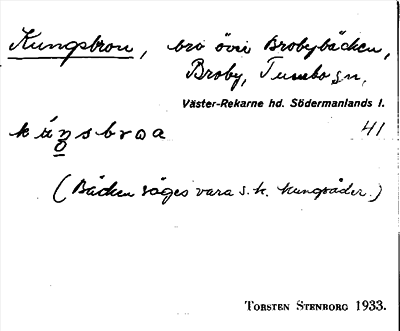 Kungsbron, bro över Brobybäcken,
Broby, Tumbo sn,
Väster-Rekarne hd. Södermanlands l.
kúŋsbroa 41
(Bäcken säges vara s. k. kungsåder.)
TORSTEN STENBORG 1933.